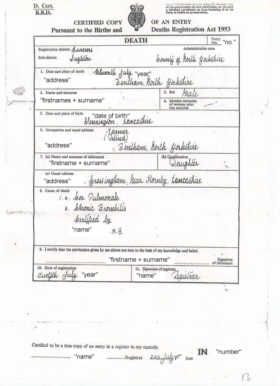 D. Cert.
R.B.D.
CERTIFIED COPY OF AN ENTRY
Pursuant to the Births and Deaths Registration Act 1953
DEATH
Entry No. "no."
Registration district
Administrative area
Sub-district
County of North Yorkshire
1. Date and place of death
Eleventh July "year"
"address" Bentham North Yorkshire
2. Name and surname
"firstnames + surname"
3. Sex Male
4. Maiden surname of woman who has married
5. Date and place of birth
"date of birth"
Lancashire
6. Occupation and usual address
Farmer
"address" Bentham North Yorkshire
7. (a) Name and surname of informant
"firstnames + surname"
(b) Qualification
Daughter
(c) Usual address
"address" Gressingham Near Hornby Lancashire
8. Cause of death
I. a. Cor Pulmonale
b. Chronic Bronchitis
Certified by
"name" M.B.
9. I certify that the particulars given by me above are true to the best of my knowledge and belief.
"firstname + surname"
Signature of informant
10. Date of registration
Twelfth July "year"
11. Signature of registrar
"name" Registrar
Certified to be a true copy of an entry in a register in my custody.
"name" Registrar
IN "number"